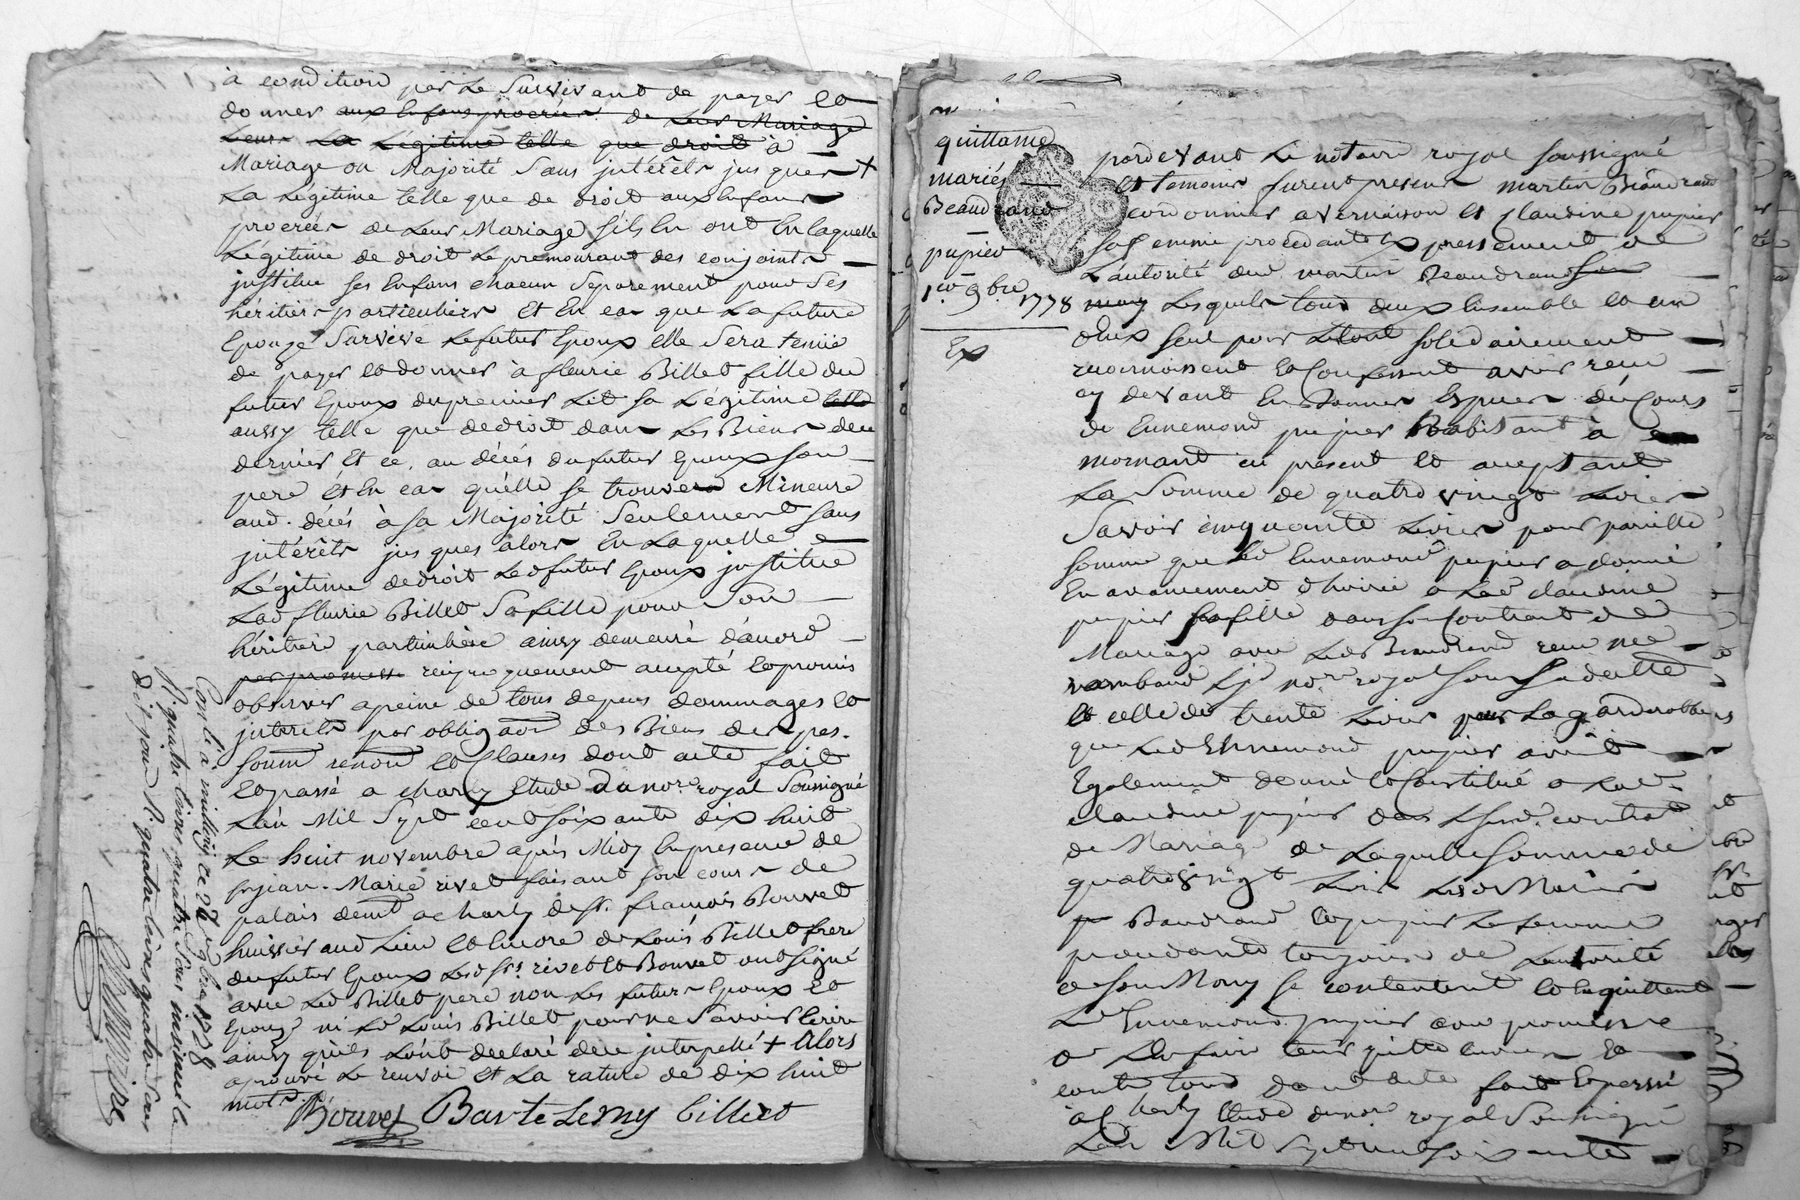 à condition par Le Survivant de payer et
donner aux Enfans procréés de Leur Mariage
Leurs La Légitime telle que droit à
Mariage ou Majorité Sans jntérêts jusques +
La Légitime telle que de droit aux Enfans
procréés de Leur Mariage S'ils En ont En laquelle
Légitime de droit Le premourant des conjoints
jnstitue ses Enfans chacun Séparement pour Ses
héritiers particuliers Et En cas que La future
Epouze Survive Le futur Epoux elle Sera tenüe
de payer et donner à fleurie Billet fille du
futur Epoux du premier Lit Sa Légitime telle
aussy telle que de droit dans Les Biens de ce
dernier Et ce, au décés du futur Epoux Son
pere Et En cas qu'elle se trouvera Mineure
aud. décés à Sa Majorité Seulement Sans
jntérêts jusques alors En Laquelle
Légitime de droit Led futur Epoux jnstitue
Lad fleurie Billet Sa fille pour Son
héritiere particuliere ainsy demeuré d'acord
par promesse reciproquement accepté et promis
observer a peine de tous depens dommages et
jnterets par obligaon des Biens des pes.
Soum renon et Clauses dont acte fait
Et passé a charly Etude du nore. royal Soussigné
L'an Mil Sept cent Soixante dix huit
Le huit novembre aprés Midy En presence de
sr jean-Marie rivet faisant Son cours de
palais demt a charly de sr. françois Bouvet
huissier aud Lieu et Encore de Loüis Billet frere
du futur Epoux Lesd srs. rivet et Bouvet ont Signé
avec Led Billet pere non Les futurs Epoux Et
Epouze ni Le d Loüis Billet pour ne Savoir Ecrire
ainsy qu'ils L'ont declaré de ce jnterpellé + Alors
aprouvé Le renvoi Et La rature de dix huit
mots
Bouvet Bartelemy billiet
Con lé à millery ce 22 9bre 1778
R. quatre livres quatre Sous insinué le
dit jour R. quatre livres quatre Sous
quittance
mariés
Beaudrand
pupier
1er 9bre 1778
Ex
pardevant Le notaire royal soussigné
Et temoins furent presens martin Beaudrand
cordonnier a vernaison Et claudine pupier
Sa femme procedante Expressement de
L'autorité dud martin Beaudrand son
mary Lesquels tous deux Ensemble et un
d'eux seul pour Le tout solidairement
reconnoissent Et Confessent avoir reçu
cy devant En bonnes Especes de Cours
de Ennemond pupier habitant à
mornant cy present et acceptant
La Somme de quatre vingt Livres
Savoir cinquante Livres pour pareille
somme que led Ennemond pupier a donné
En avancement d'hoirie a Lad claudine
pupier sa fille dans son Contrat de
Mariage avec Led Beaudrand reçu me
nore royal sous sa datte
et celle de trente Livres pour La garderobbe
que Led Ennemond pupier avoit
Egalement donné et Constitué a Lad.
claudine pupier dans Led. contrat
de Mariage de Laquelle somme de
quatre vingt Livres Lesd Mariés
Baudrand et pupier Le femme
procedante toujours de L'autorité
de son Mary se contentent et En quittent
Led Ennemond pupier avec promesse
de L'en faire tenir quitte Envers Et
contre tous dont acte fait Et passé
à Charly Etude du nore royal Soussigné
L'an Mil Sept cent soixante